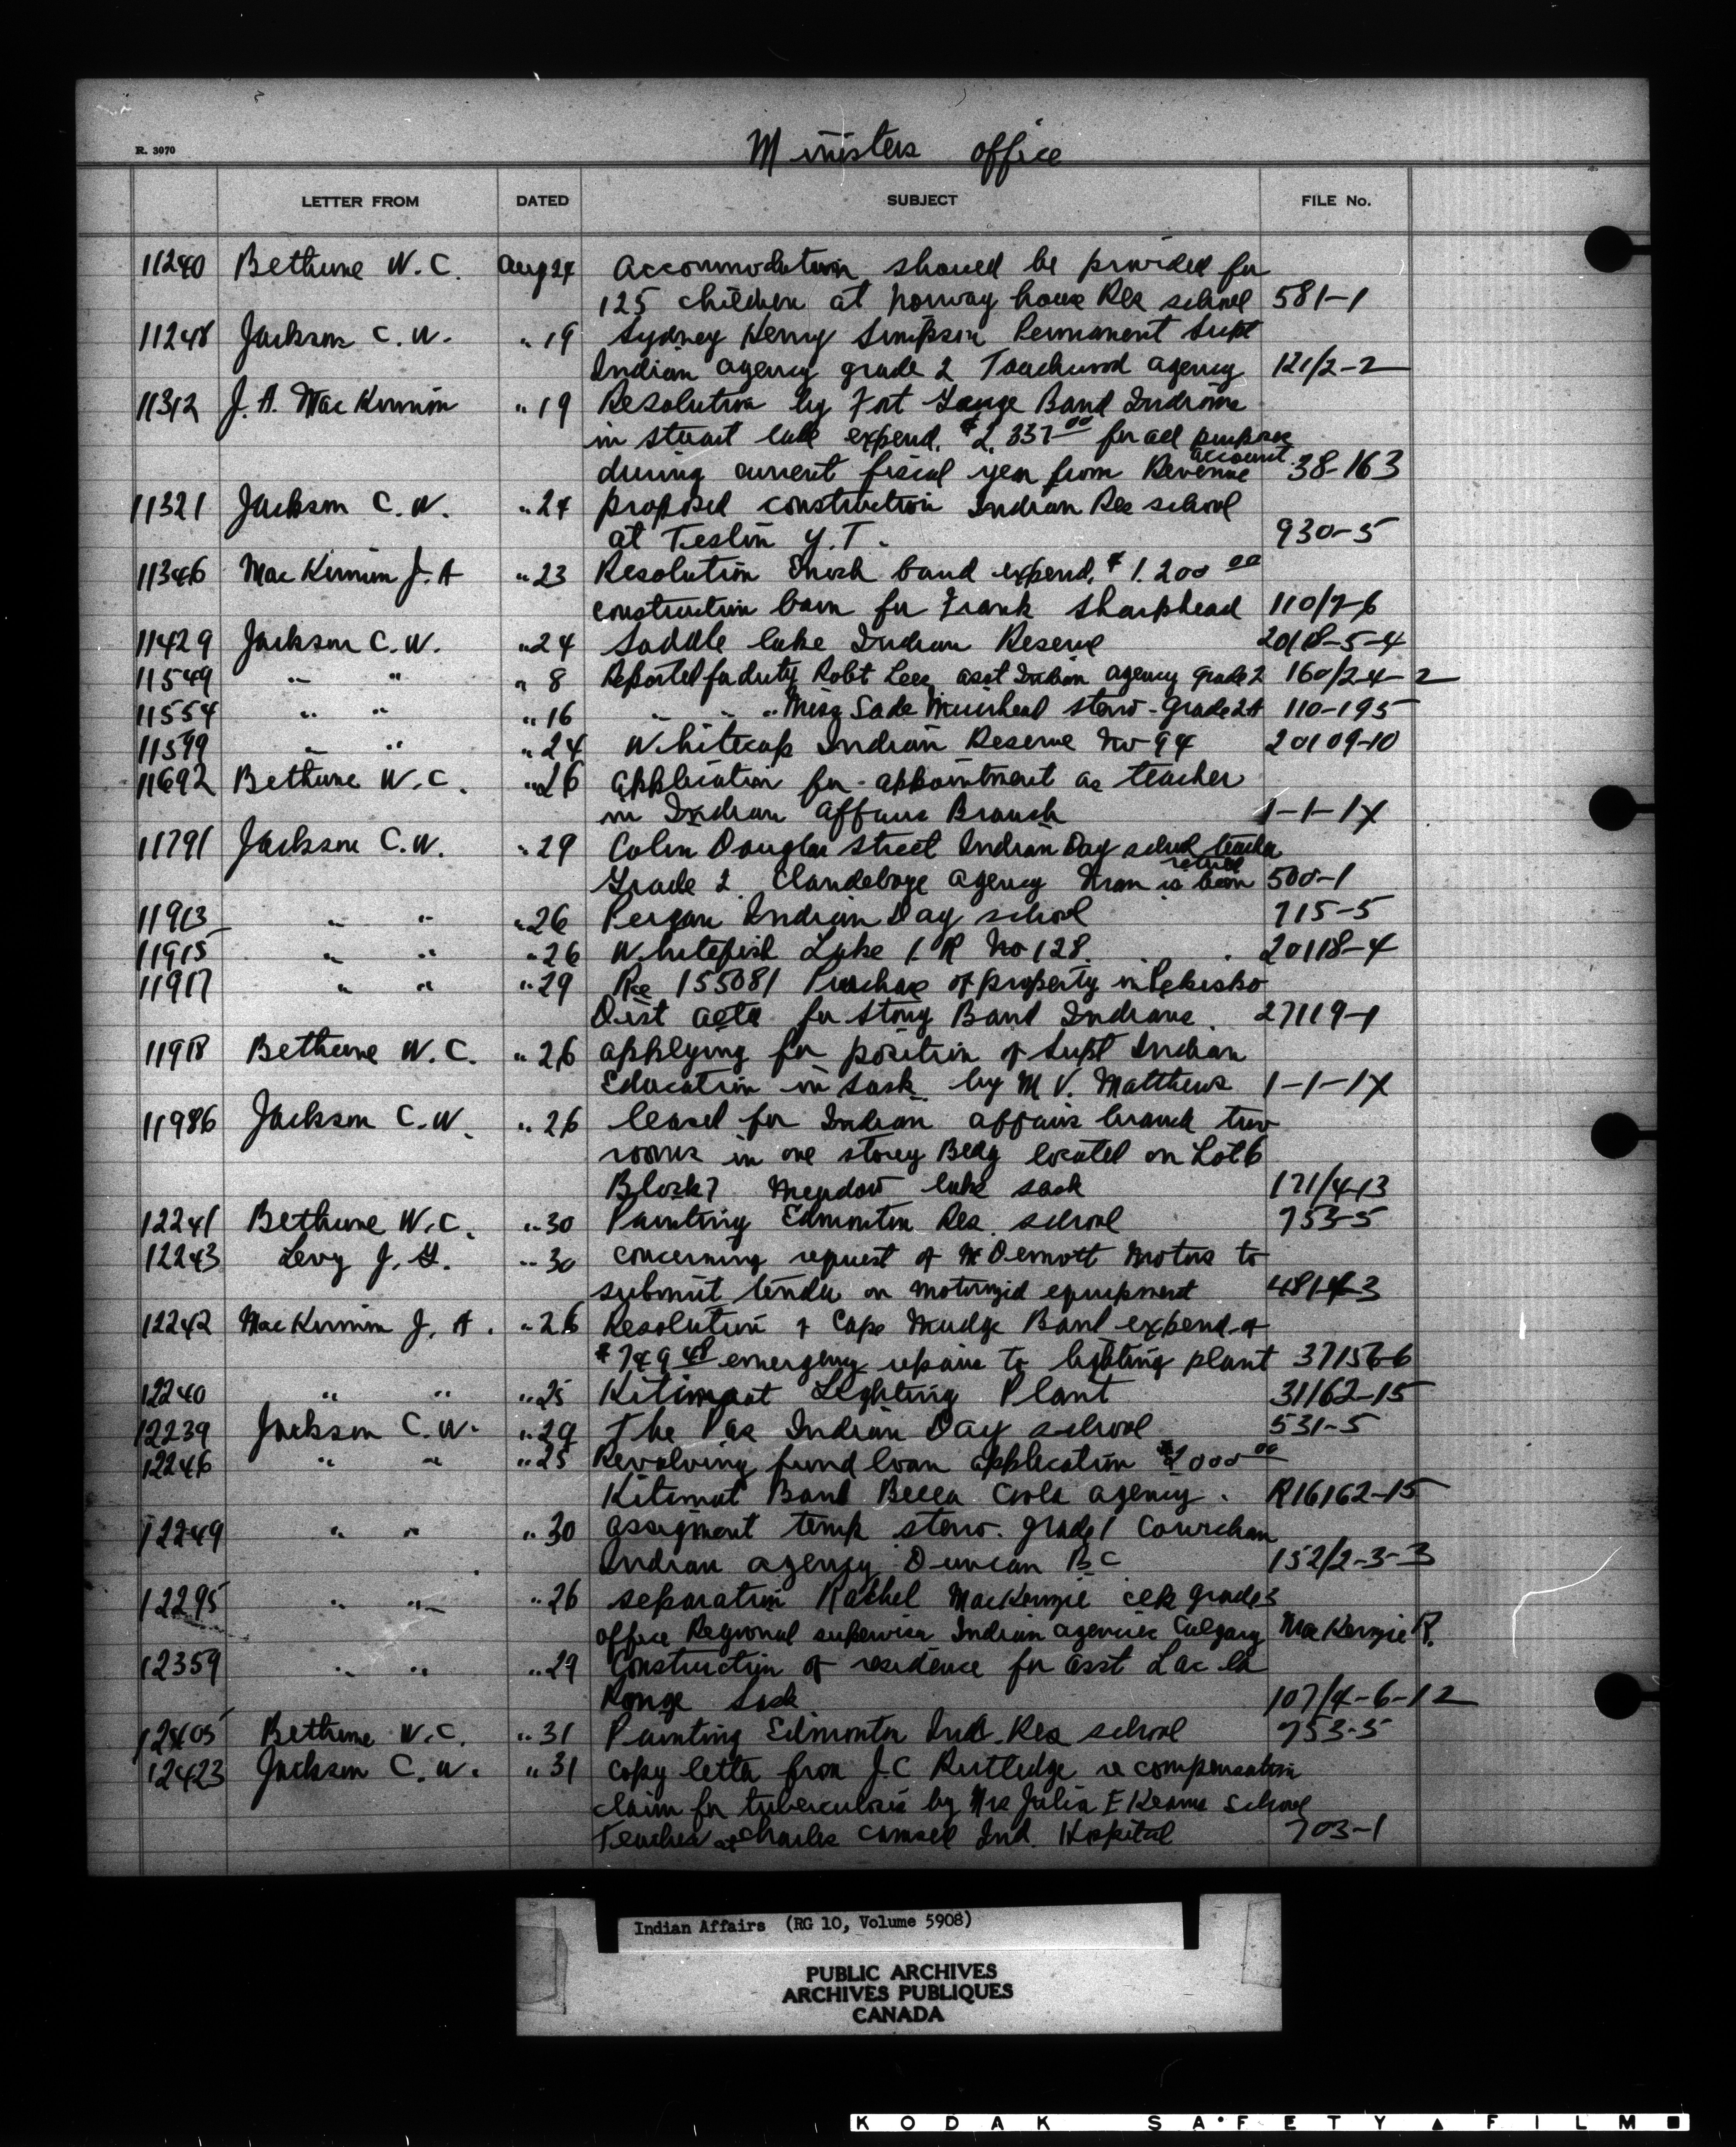 Ministers office
R. 3070
LETTER FROM DATED SUBJECT FILE No.
11240 Bethune W.C. Aug 24 Accommodation should be provided for
125 children at Norway house Res school 581-1
11248 Jackson C.W. " 19 Sydney Henry Simpson Permanent Supt
Indian agency grade 2 Touchwood agency 121/2-2
11312 J.A. MacKinnon " 19 Resolution by Fort George Band Indians
in Stuart lake expend. $2,337.00 for all purposes
during current fiscal year from Revenue account 38-163
11321 Jackson C.W. " 24 proposed construction Indian Res school
at Teslin Y.T. 930-5
11346 MacKinnon J.A " 23 Resolution Enoch band expend. $1.200 00
construction barn for Frank Sharphead 110/7-6
11429 Jackson C.W. " 24 Saddle lake Indian Reserve 20118-5-4
11549 " " " 8 Reported for duty Robt Lee asst Indian agency grade 2 160/2-4-2
11554 " " " 16 " " " Miss Sade Muirhead steno-grade 2A 110-195
11599 " " " 24 Whitecap Indian Reserve No 94 20109-10
11692 Bethune W.C. " 26 application for appointment as teacher
in Indian Affairs Branch 1-1-1X
11791 Jackson C.W. " 29 Colin Douglas Street Indian Day school teacher
Grade 2 Clandeboye agency Man is been retired 500-1
11913 " " " 26 Peigan Indian Day school 715-5
11915 " " " 26 Whitefish Lake I R No 128. 20118-4
11917 " " " 29 Re 155081 Purchase of property in Pekisko
Dist alta for Stony Band Indians. 27119-1
11918 Bethune W.C. " 26 applying for position of Supt Indian
Education in Sask by M V. Matthews 1-1-1X
11986 Jackson C.W. " 26 leased for Indian affairs branch two
rooms in one storey Bldg located on Lot 6
Block 7 Meadow lake sask 171/4-13
12241 Bethune W.C. " 30 Painting Edmonton Res. school 753-5
12243 Levy J.G. " 30 concerning request of McDermott Motors to
submit tender on motorized equipment 481-4-3
12242 MacKinnon J.A. " 26 Resolution of Cape Mudge Band expend of
$749 48 emergency repairs to lighting plant 37156-6
12240 " " " 25 Kitimaat Lighting Plant 31162-15
12239 Jackson C.W. " 29 The Pas Indian Day school 531-5
12246 " " " 25 Revolving fund loan application $2000 00
Kitimat Band Bella Coola agency. R16162-15
12249 " " " 30 assigment temp steno. grade 1 Cowichan
Indian agency Duncan B C 152/2-3-3
12295 " " " 26 separation Rachel MacKenzie clk grade 3
office Regional supervisor Indian agencies Calgary MacKenzie R.
12359 " " " 29 Construction of residence for asst Lac la
Ronge Sask 107/4-6-12
12405 Bethune W.C. " 31 Painting Edmonton Ind. Res school 753-5
12423 Jackson C.W. " 31 copy letter from J.C Rutledge re compensation
claim for tuberculosis by Mrs Julia E Kearns School
Teacher at Charles Camsell Ind. Hospital 703-1
Indian Affairs (RG 10, Volume 5908)
PUBLIC ARCHIVES
ARCHIVES PUBLIQUES
CANADA
KODAK SAFETY FILM